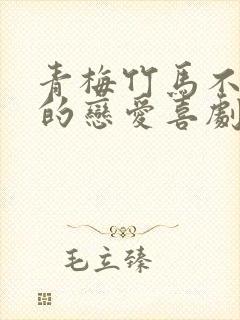 青梅竹馬不
的戀愛喜劇
毛立臻